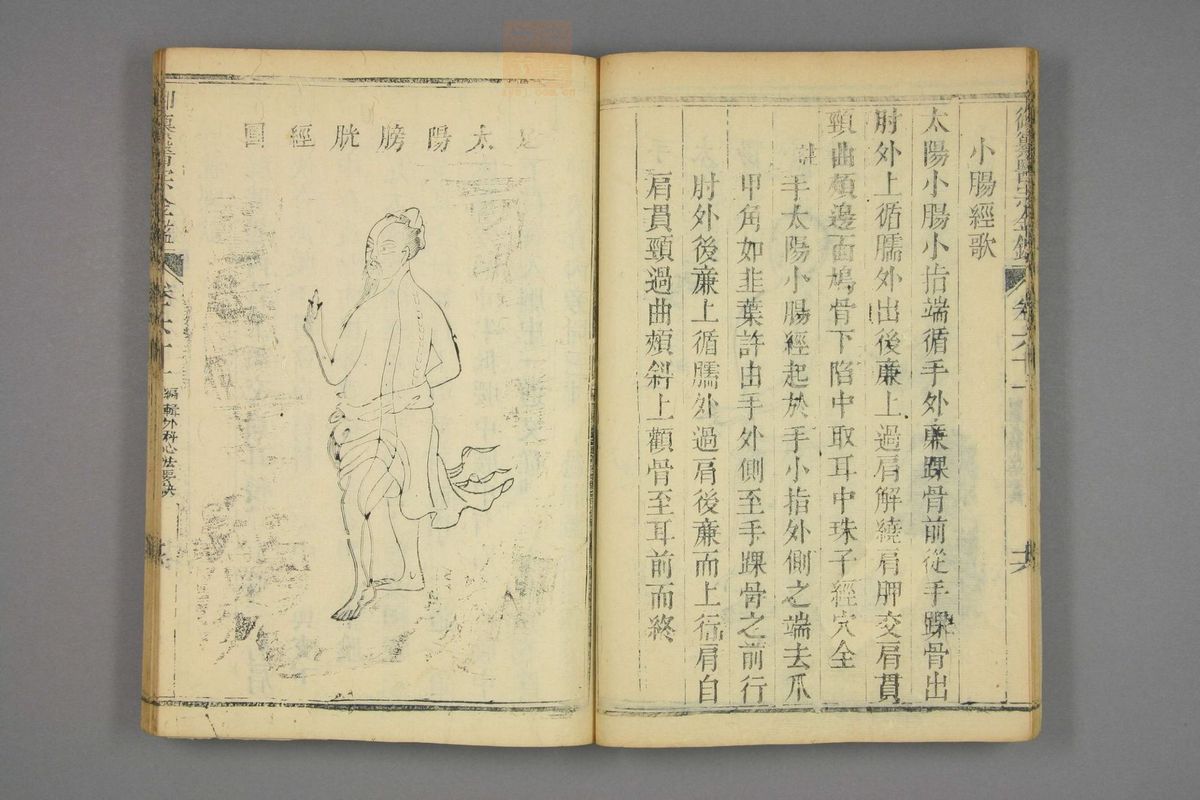 御纂醫宗金鑑
卷六十一
小腸經歌
太陽小腸小指端循手外廉踝骨前從手踝骨出
肘外上循臑外出後廉上過肩解繞肩胛交肩貫
頸曲頰邊面鳩骨下陷中取耳中珠子經穴全
註手太陽小腸經起於手小指外側之端去爪
甲角如韭葉許由手外側至手踝骨之前行
肘外後廉上循臑外過肩後廉而上行肩自
肩貫頸過曲頰斜上顴骨至耳前而終
足太陽膀胱經圖
御纂醫宗金鑑
卷六十一
編輯外科心法要訣